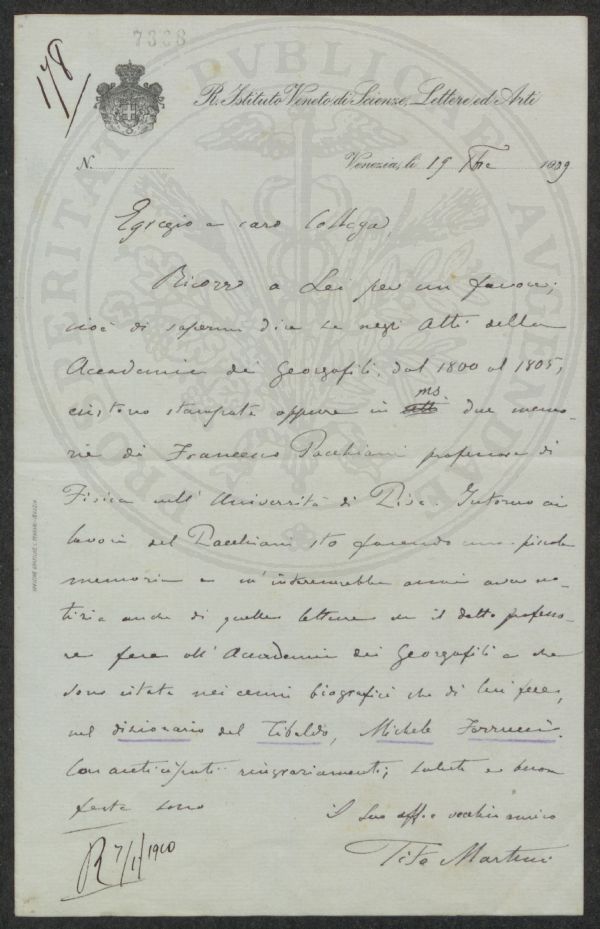 7368
178
R. Istituto Veneto di Scienze, Lettere ed Arti
N.
Venezia, li 19 Xbre 1909
Egregio e caro Collega,
Ricorro a Lei per un favore;
cioè di sapermi dire se negli Atti della
Accademia dei Georgofili, dal 1800 al 1805,
esistono stampate oppure in ms. due memo-
rie di Francesco Pacchiani professore di
Fisica nell' Università di Pisa. Intorno ai
lavori del Pacchiani sto facendo una piccola
memoria e m' interesserebbe avere no-
tizia anche di quelle letture che il detto professo-
re fece all' Accademia dei Georgofili e che
sono citate nei cenni biografici che di lui fece,
nel dizionario del Tibaldo, Michele Ferrucci.
Con anticipati ringraziamenti, saluti e buone
feste sono
il Suo aff.o vecchio amico
Tito Martini
R 7/1/1910
PRO PUBLICAE AUGENDAE